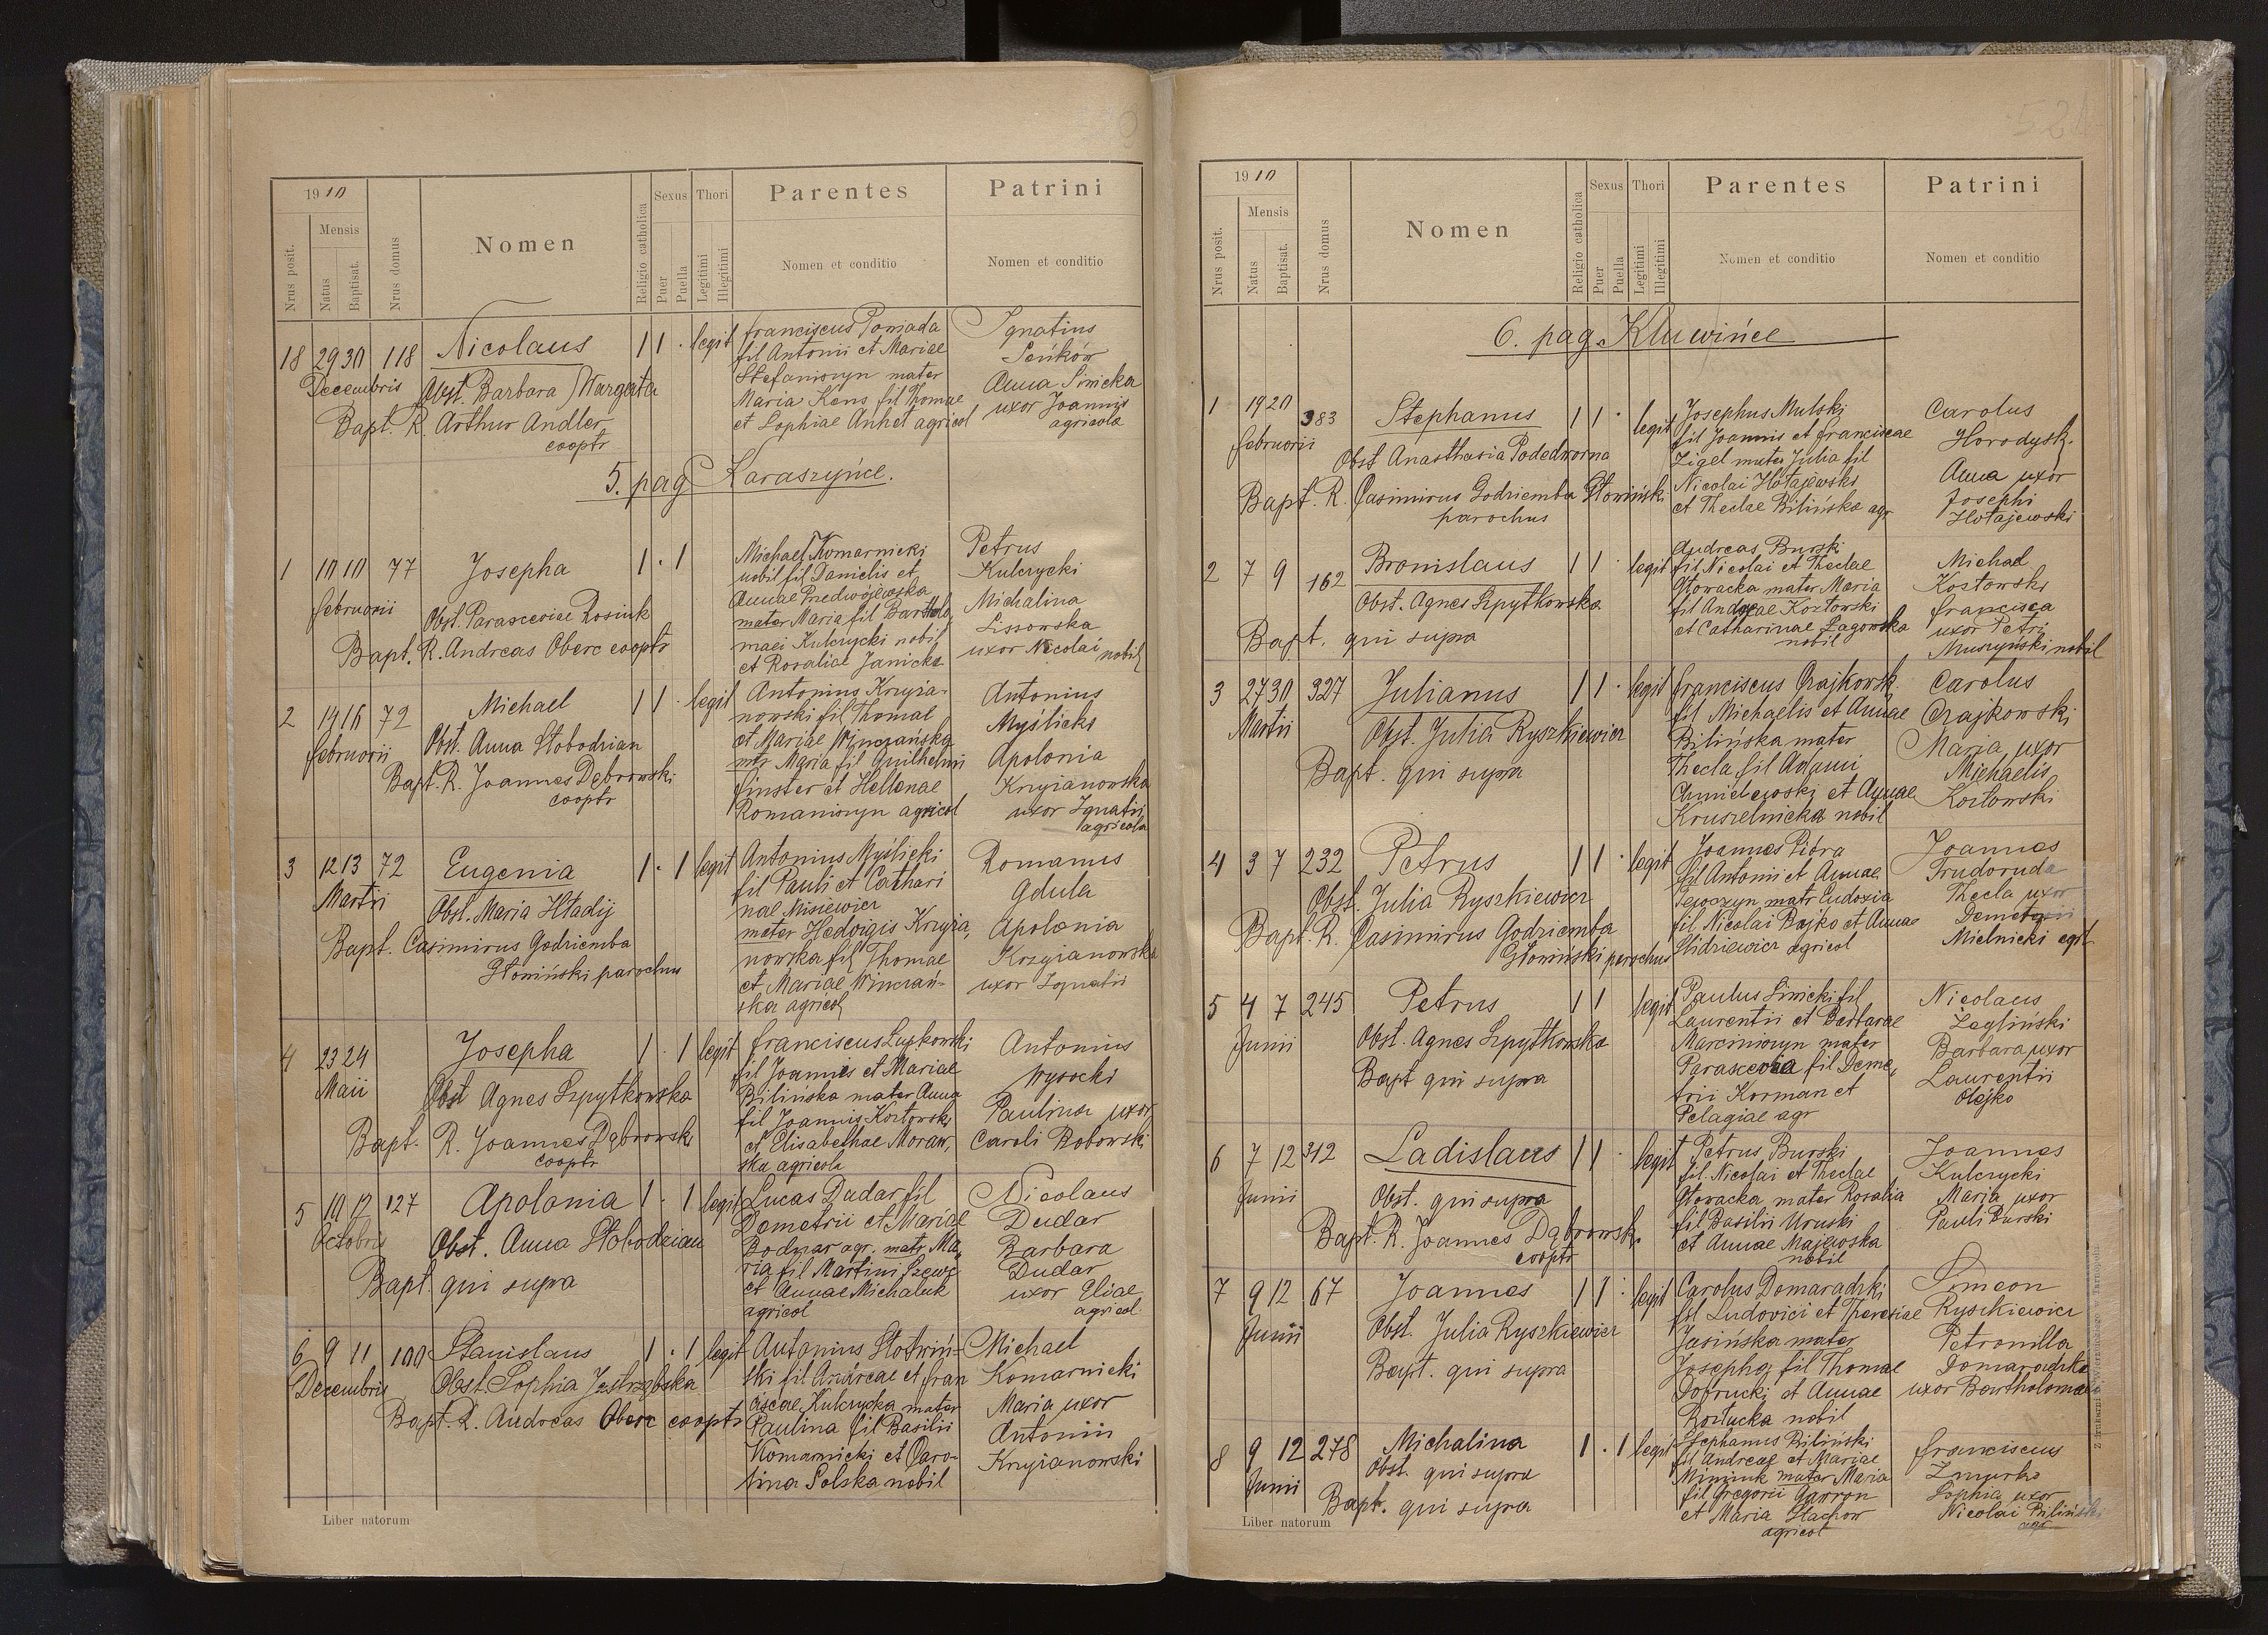 1910
Nrus posit.
Mensis
Natus
Baptisat.
Nrus domus
Nomen
Religio catholica
Sexus
Puer
Puella
Thori
Legitimi
Illegitimi
Parentes
Nomen et conditio
Patrini
Nomen et conditio
18 29 30 118 Nicolaus 1 1 · legit
Decembris Obst. Barbara Wargata
Bapt. R. Arthur Andler
cooptr
Franciscus Pomada
fil Antonii et Mariae
Stefaniszyn mater
Maria Kens fil Thomae
et Sophiae Anhet agricol
Ignatius
Seńków
Anna Sinicka
uxor Joannis
agricola
5. pag Karaszyńce.
1 10 10 77 Josepha 1 · 1
februarii
Obst. Parasceviae Rosiuk
Bapt. R. Andreas Oberc cooptr
Michael Komarnicki
nobil fil Danielis et
Annae Przedwojewska
mater Maria fil Bartholo
maei Kulczycki nobil
et Rosaliae Janicka
Petrus
Kulczycki
Michalina
Lissowska
uxor Nicolai nobil
2 14 16 72 Michael 1 1 · legit
februarii Obst. Anna Słobodzian
Bapt. R. Joannes Dąbrowski
cooptr
Antonius Krzyża-
nowski fil Thomae
et Mariae Winczańska
mtr Maria fil Guilhelmi
Finster et Hellenae
Romaniszyn agricol
Antonius
Myślicki
Apolonia
Krzyżanowska
uxor Ignatii
agricola
3 12 13 72 Eugenia 1 · 1 legit
Martii
Obst. Maria Hładij
Bapt. Casimirus Godziemba
Głowiński parochus
Antonius Myślicki
fil Pauli et Cathari
nae Misiewicz
mater Hedvigis Krzyża,
nowska fil Thomae
et Mariae Winczań-
ska agricol
Romanus
Gdula
Apolonia
Krzyżanowska
uxor Ignatii
4 23 24 Josepha 1 · 1 legit
Maii
Obst Agnes Szpytkowska
Bapt. R. Joannes Dąbrowski
cooptr
Franciscus Łuszkowski
fil Joannis et Mariae
Bilińska mater Anna
fil Joannis Kozłowski
et Elisabethae Moraw,
ska agricola
Antonius
Wysocki
Paulina uxor
Caroli Bobowski
5 10 12 127 Apolonia 1 · 1 legit
Octobris
Obst. Anna Słobodzian
Bapt. qui supra
Lucas Dudar fil
Demetrii et Mariae
Bodnar agr. matr Ma,
ria fil Martini Szewc
et Annae Michaluk
agricol
Nicolaus
Dudar
Barbara
Dudar
uxor Eliae
agricol.
6 9 11 100 Stanislaus 1 · 1 legit
Decembris Obst. Sophia Jastrzębska
Bapt. R. Andreas Oberc cooptr
Antonius Słotwiń-
ski fil Andreae et Fran
ciscae Kulczycka mater
Paulina fil Basilii
Komarnicki et Caro-
lina Solska nobil
Michael
Komarnicki
Maria uxor
Antonii
Krzyżanowski
Liber natorum
1910
Nrus posit.
Mensis
Natus
Baptisat.
Nrus domus
Nomen
Religio catholica
Sexus
Puer
Puella
Thori
Legitimi
Illegitimi
Parentes
Nomen et conditio
Patrini
Nomen et conditio
6. pag. Kluwińce
1 19 20 383 Stephanus 1 1 · legit
februarii
Obst Anasthasia Podedworna
Bapt. R. Casimirus Godziemba Głowiński
parochus
Josephus Mulski
fil Joannis et Franciscae
Zigel mater Julia fil
Nicolai Hołajewski
et Theclae Bilińska agr
Carolus
Horodysk.
Anna uxor
Josephi
Hołajewski
2 7 9 162 Bronislaus 1 1 · legit
Obst. Agnes Szpytkowska
Bapt. qui supra
Andreas Burski
fil. Nicolai et Theclae
Głowacka mater Maria
fil Andreae Kozłowski
et Catharinae Łagowska
nobil
Michael
Kozłowski
Francisca
uxor Petri
Muszyński nobil
3 27 30 327 Julianus 1 1 · legit
Martii
Obst. Julia Ryszkiewicz
Bapt. qui supra
Franciscus Czajkowsk.
fil Michaelis et Annae
Bilińska mater
Thecla fil Adami
Chmielewski et Annae
Kruszelnicka nobil
Carolus
Czajkowski
Maria uxor
Michaelis
Kozłowski
4 3 7 232 Petrus 1 1 · legit
Obst. Julia Ryszkiewicz
Bapt. R. Casimirus Godziemba
Głowiński parochus
Joannes Pióra
fil Antonii et Annae
matr Eudoxia
fil Nicolai Bojko et Annae
agricol
Joannes
Trudoruda
Thecla uxor
Demetrii
Mielnicki
5 4 7 245 Petrus 1 1 legit
Junii
Obst. Agnes Szpytkowska
Bapt qui supra
Paulus Sinicki fil
Laurentii et Barbarae
Marciniszyn mater
Parascevia fil Deme,
trii Korman et
Pelagiae agr
Nicolaus
Zagliński
Barbara uxor
Laurentii
Olejko
6 7 12 312 Ladislaus 1 1 · legit
Junii
Obst. qui supra
Bapt. R. Joannes Dąbrowsk.
cooptr
Petrus Burski
fil. Nicolai et Theclae
Głowacka mater Rosalia
fil Basilii Uruski
et Annae Majewska
nobil
Joannes
Kulczycki
Maria uxor
Pauli Burski
7 9 12 67 Joannes 1 1 · legit
Junii
Obst. Julia Ryszkiewicz
Bapt. qui supra
Carolus Domaradzki
fil Ludovici et Theresiae
Jasińska mater
Josepha fil Thomae
Dobrucki et Annae
Rożłucka nobil
Simeon
Ryszkiewicz
Petronilla
Domaradzka
uxor Bartholomaei
8 9 12 278 Michalina 1 · 1 legit
Junii
Obst. qui supra
Bapt. qui supra
Stephanus Biliński
fil Andreae et Mariae
mater Maria
fil Gregorii Gawron
et Maria Hachow
agricol
Franciscus
Zmurko
Sophia uxor
Nicolai Biliński
agr
Liber natorum